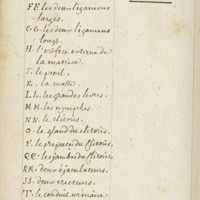 FF les deux ligamens
larges.
GG les deux ligamens
longs.
H. l'orifice externe de
la matrice.
I. le penil.
K. la motte.
LL. les grandes levres.
MM. les nymphes.
NN. le clitoris.
O. le gland du clitoris.
P. le prepuce du Clitoris.
QQ. les jambes du Clitoris.
RR. deux ejaculateurs.
SS. deux erecteurs.
T. le conduit urinaire.